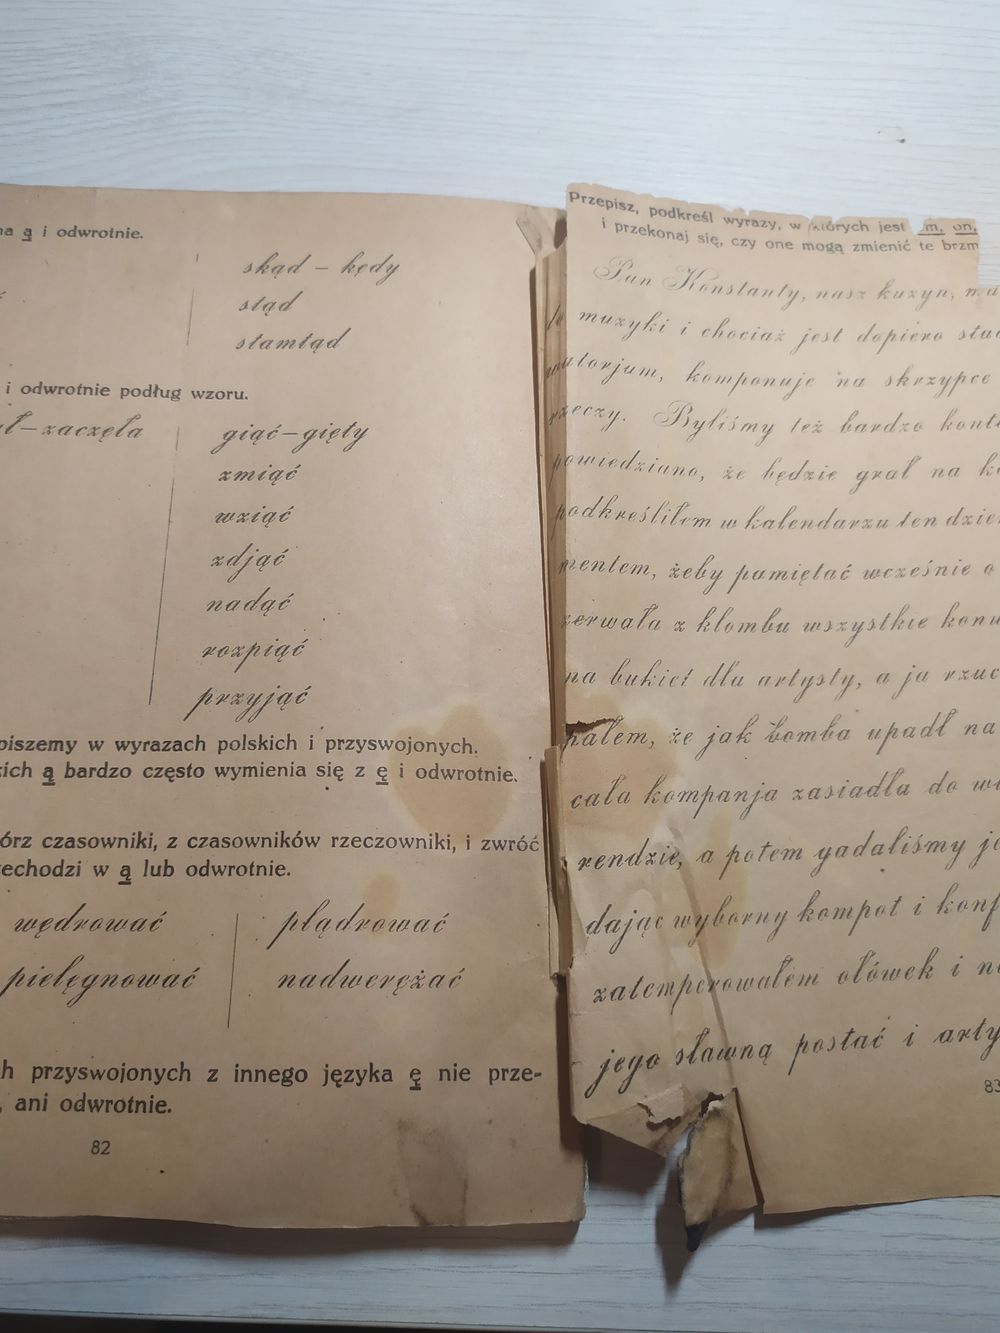 na ą i odwrotnie.
skąd – kędy
stąd
stamtąd
i odwrotnie podług wzoru.
zaczęła
giąć – gięty
zmiąć
wziąć
zdjąć
nadąć
rozpiąć
przyjąć
piszemy w wyrazach polskich i przyswojonych.
ą bardzo często wymienia się z ę i odwrotnie.
czasowniki, z czasowników rzeczowniki, i zwróć
w ą lub odwrotnie.
wędrować
plądrować
pielęgnować
nadwerężać
przyswojonych z innego języka ę nie prze-
, ani odwrotnie.
82
Przepisz, podkreśl wyrazy, w których jest om, on,
i przekonaj się, czy one mogą zmienić te brzm
Pan Konstanty, nasz kuzyn,
muzyki i chociaż jest dopiero
komponuje na skrzypce
rzeczy. Byliśmy też bardzo
powiedziano, że będzie grał na
podkreśliłem w kalendarzu ten
mentem, żeby pamiętać wcześnie o
zerwała z klombu wszystkie
na bukiet dla artysty, a ja
pałem, że jak bomba upadł na
cała kompanja zasiadła do
rendzie, a potem gadaliśmy
dając wyborny kompot i
zatemperowałem ołówek i
jego sławną postać i
83